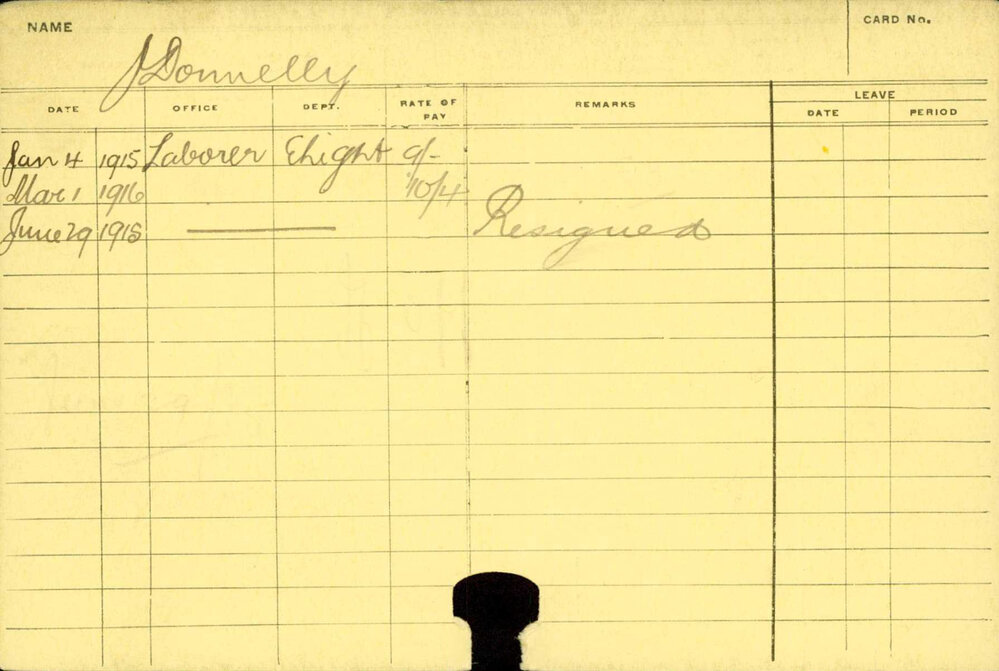 NAME
CARD No.
J Donnelly
DATE OFFICE DEPT. RATE OF PAY REMARKS LEAVE
DATE PERIOD
Jan 4 1915 Laborer Elight 9/-
Mar 1 1916 10/4
June 29 1918 Resigned